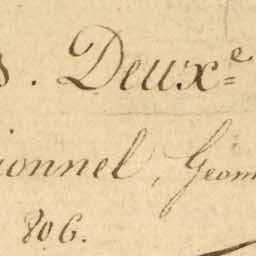 s. Deuxe
ionnel, Géom
806.